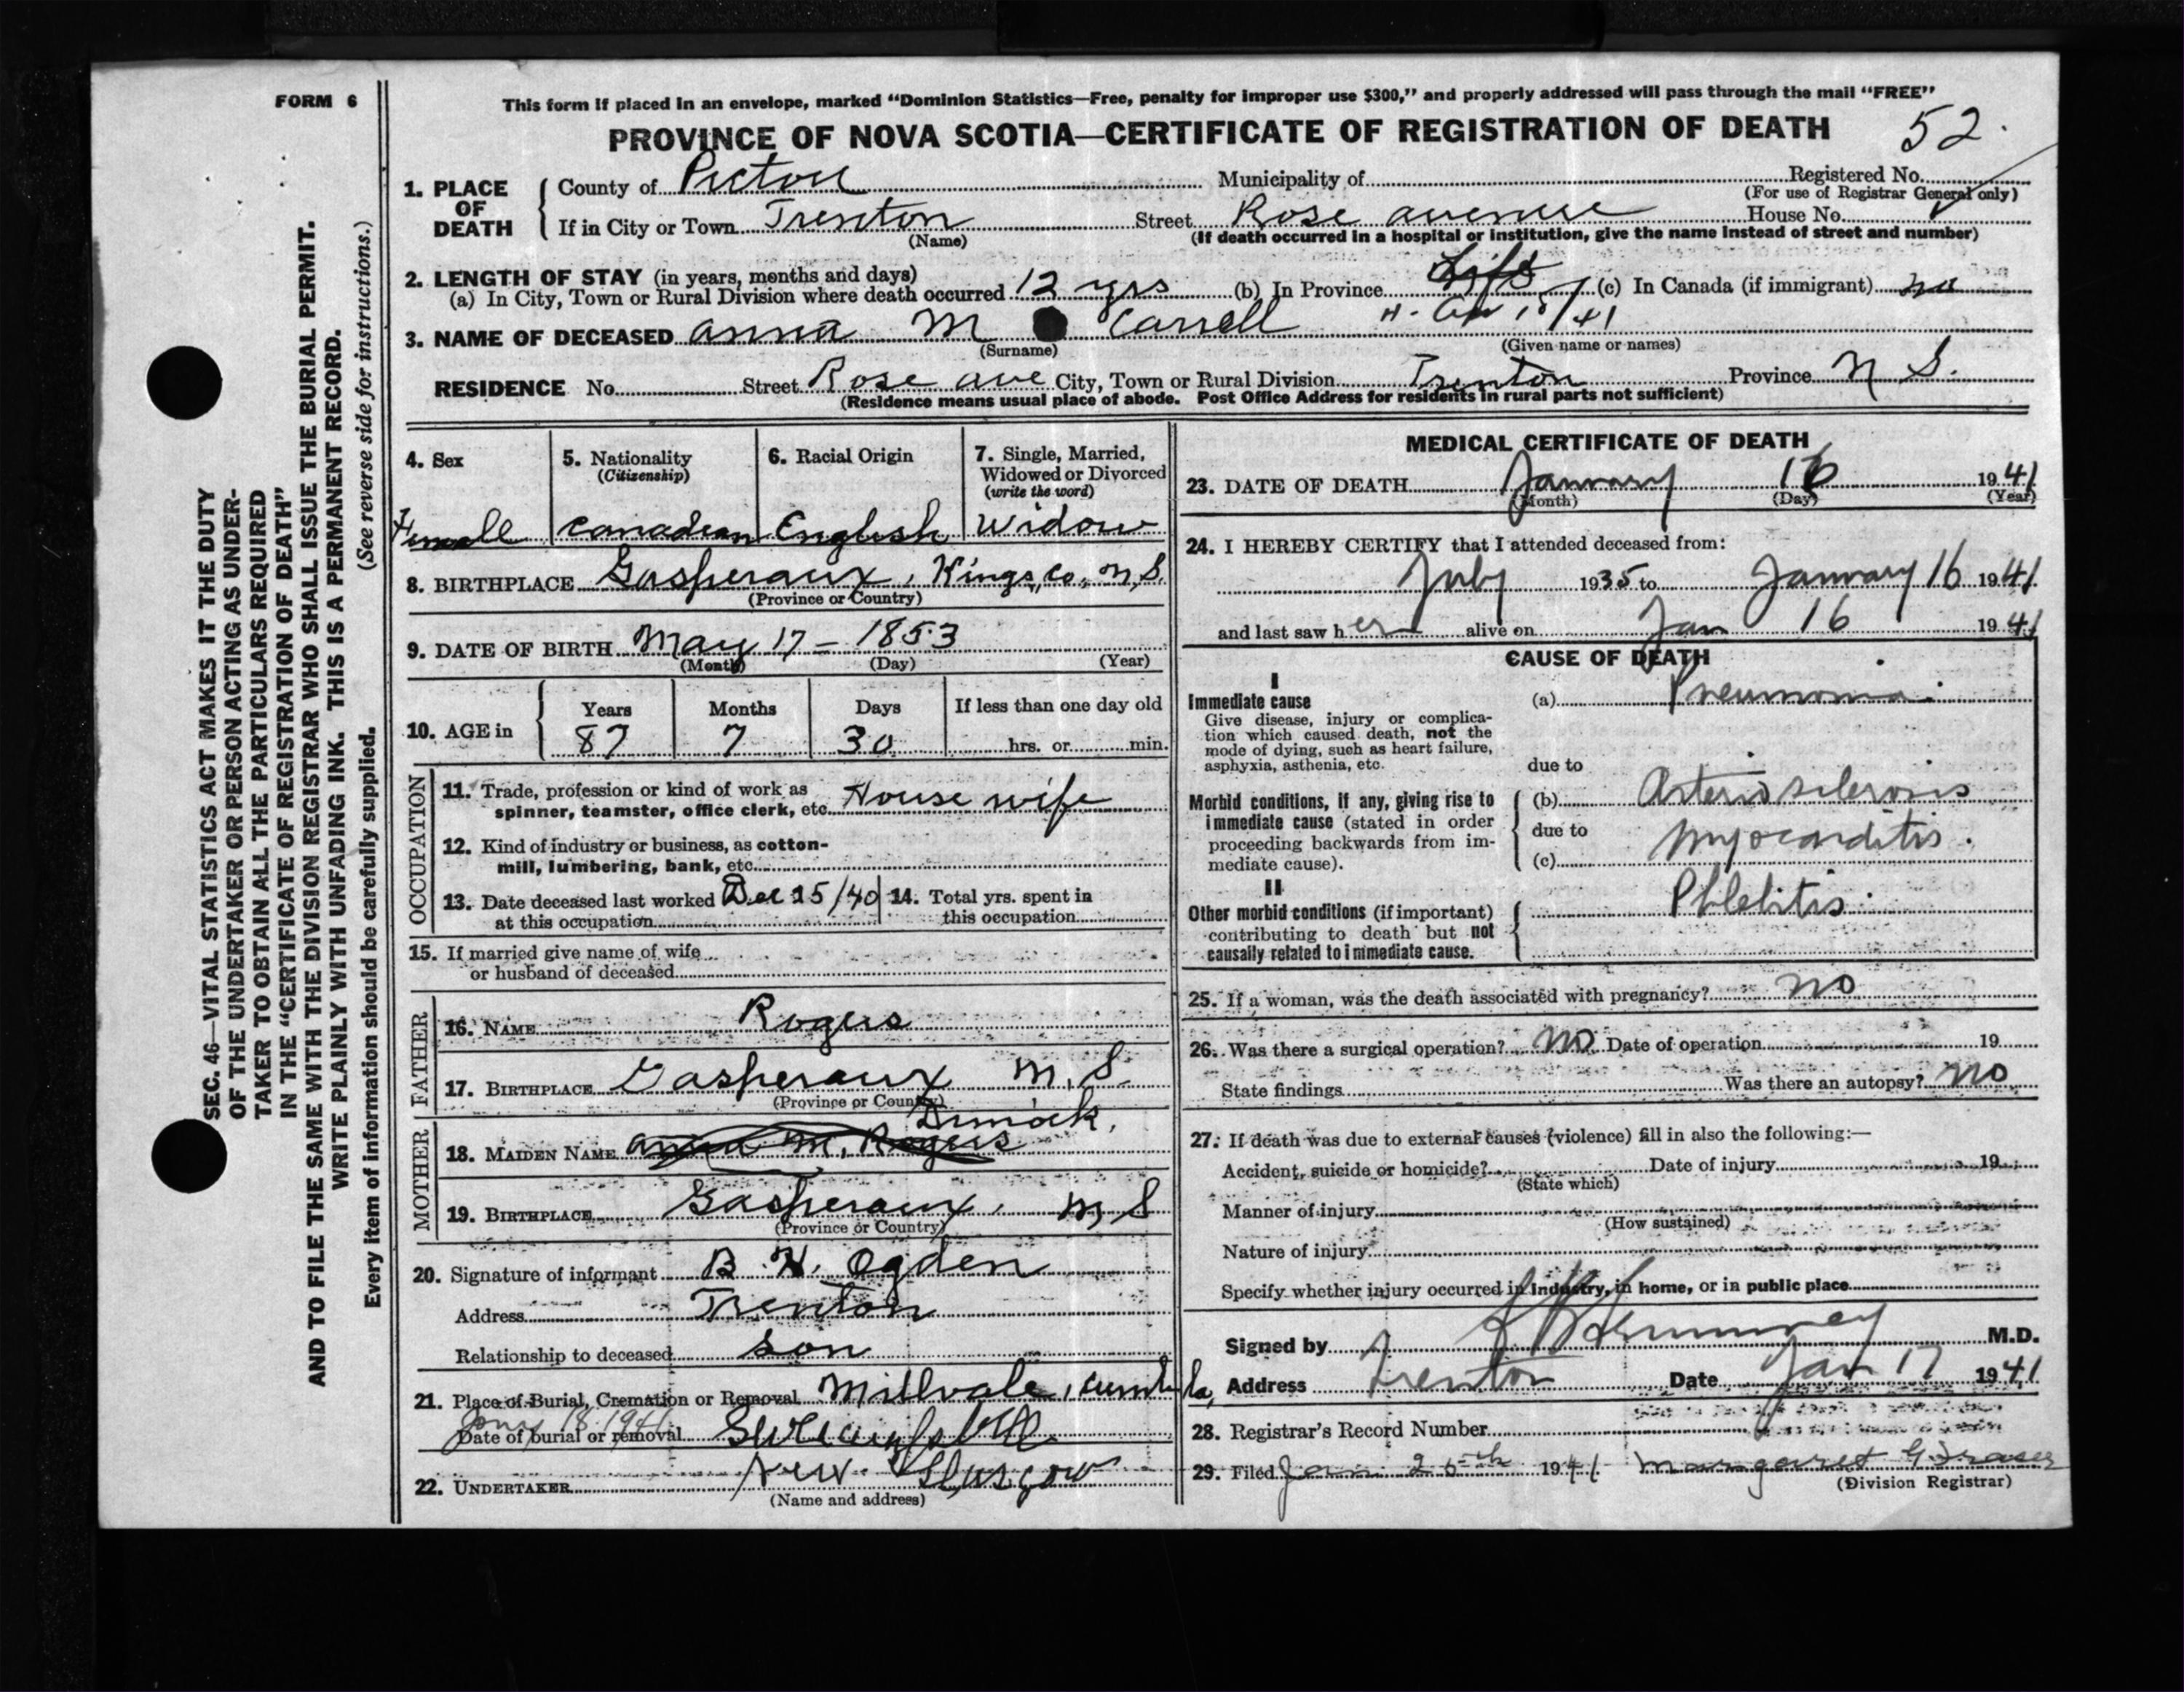 FORM 6
This form if placed in an envelope, marked “Dominion Statistics—Free, penalty for improper use $300,” and properly addressed will pass through the mail “FREE”
PROVINCE OF NOVA SCOTIA—CERTIFICATE OF REGISTRATION OF DEATH 52.
SEC. 46—VITAL STATISTICS ACT MAKES IT THE DUTY
OF THE UNDERTAKER OR PERSON ACTING AS UNDER-
TAKER TO OBTAIN ALL THE PARTICULARS REQUIRED
IN THE “CERTIFICATE OF REGISTRATION OF DEATH”
AND TO FILE THE SAME WITH THE DIVISION REGISTRAR WHO SHALL ISSUE THE BURIAL PERMIT.
WRITE PLAINLY WITH UNFADING INK. THIS IS A PERMANENT RECORD.
(See reverse side for instructions.)
Every item of information should be carefully supplied.
1. PLACE OF DEATH
County of Pictou Municipality of Registered No.
(For use of Registrar General only)
If in City or Town Trenton Street Rose avenue House No.
(Name)
(If death occurred in a hospital or institution, give the name instead of street and number)
2. LENGTH OF STAY (in years, months and days)
(a) In City, Town or Rural Division where death occurred 12 yrs (b) In Province Life (c) In Canada (if immigrant) no
3. NAME OF DECEASED anna M Carrell
(Surname) (Given name or names)
RESIDENCE No. Street Rose ave City, Town or Rural Division Trenton Province N S.
(Residence means usual place of abode. Post Office Address for residents in rural parts not sufficient)
4. Sex
Female
5. Nationality
(Citizenship)
Canadian
6. Racial Origin
English
7. Single, Married,
Widowed or Divorced
(write the word)
Widow
8. BIRTHPLACE Gasperaux, Kings, Co., N, S.
(Province or Country)
9. DATE OF BIRTH May 17 - 1853
(Month) (Day) (Year)
10. AGE in
Years Months Days If less than one day old
87 7 30 hrs. or min.
OCCUPATION
11. Trade, profession or kind of work as
spinner, teamster, office clerk, etc. House wife
12. Kind of industry or business, as cotton-
mill, lumbering, bank, etc.
13. Date deceased last worked Dec 25/40
at this occupation
14. Total yrs. spent in
this occupation
15. If married give name of wife
or husband of deceased
FATHER
16. NAME Rogers
17. BIRTHPLACE Gasperaux N. S.
(Province or Country)
MOTHER
Dimock,
18. MAIDEN NAME anna M. Rogers
19. BIRTHPLACE Gasperaux, N S
(Province or Country)
20. Signature of informant B. H. Ogden
Address Trenton
Relationship to deceased son
21. Place of Burial, Cremation or Removal Millvale,
Jany 18. 1941
Date of burial or removal
22. UNDERTAKER New Glasgow
(Name and address)
MEDICAL CERTIFICATE OF DEATH
23. DATE OF DEATH January 16 1941
(Month) (Day) (Year)
24. I HEREBY CERTIFY that I attended deceased from:
July 1935 to January 16 1941
and last saw her alive on Jan 16 1941
CAUSE OF DEATH
I
Immediate cause
Give disease, injury or complica-
tion which caused death, not the
mode of dying, such as heart failure,
asphyxia, asthenia, etc.
(a) Pneumonia
due to
Morbid conditions, if any, giving rise to
immediate cause (stated in order
proceeding backwards from im-
mediate cause).
(b) Arterio sclerosis
due to
(c) Myocarditis.
II
Other morbid conditions (if important)
contributing to death but not
causally related to immediate cause.
Phlebitis
25. If a woman, was the death associated with pregnancy? no
26. Was there a surgical operation? No. Date of operation 19
State findings Was there an autopsy? No
27. If death was due to external causes (violence) fill in also the following:—
Accident, suicide or homicide? Date of injury 19
(State which)
Manner of injury
(How sustained)
Nature of injury
Specify whether injury occurred in industry, in home, or in public place
Signed by M.D.
Address Trenton Date Jan 17 1941
28. Registrar's Record Number
29. Filed Jan 20th 1941 Margaret G Fraser
(Division Registrar)